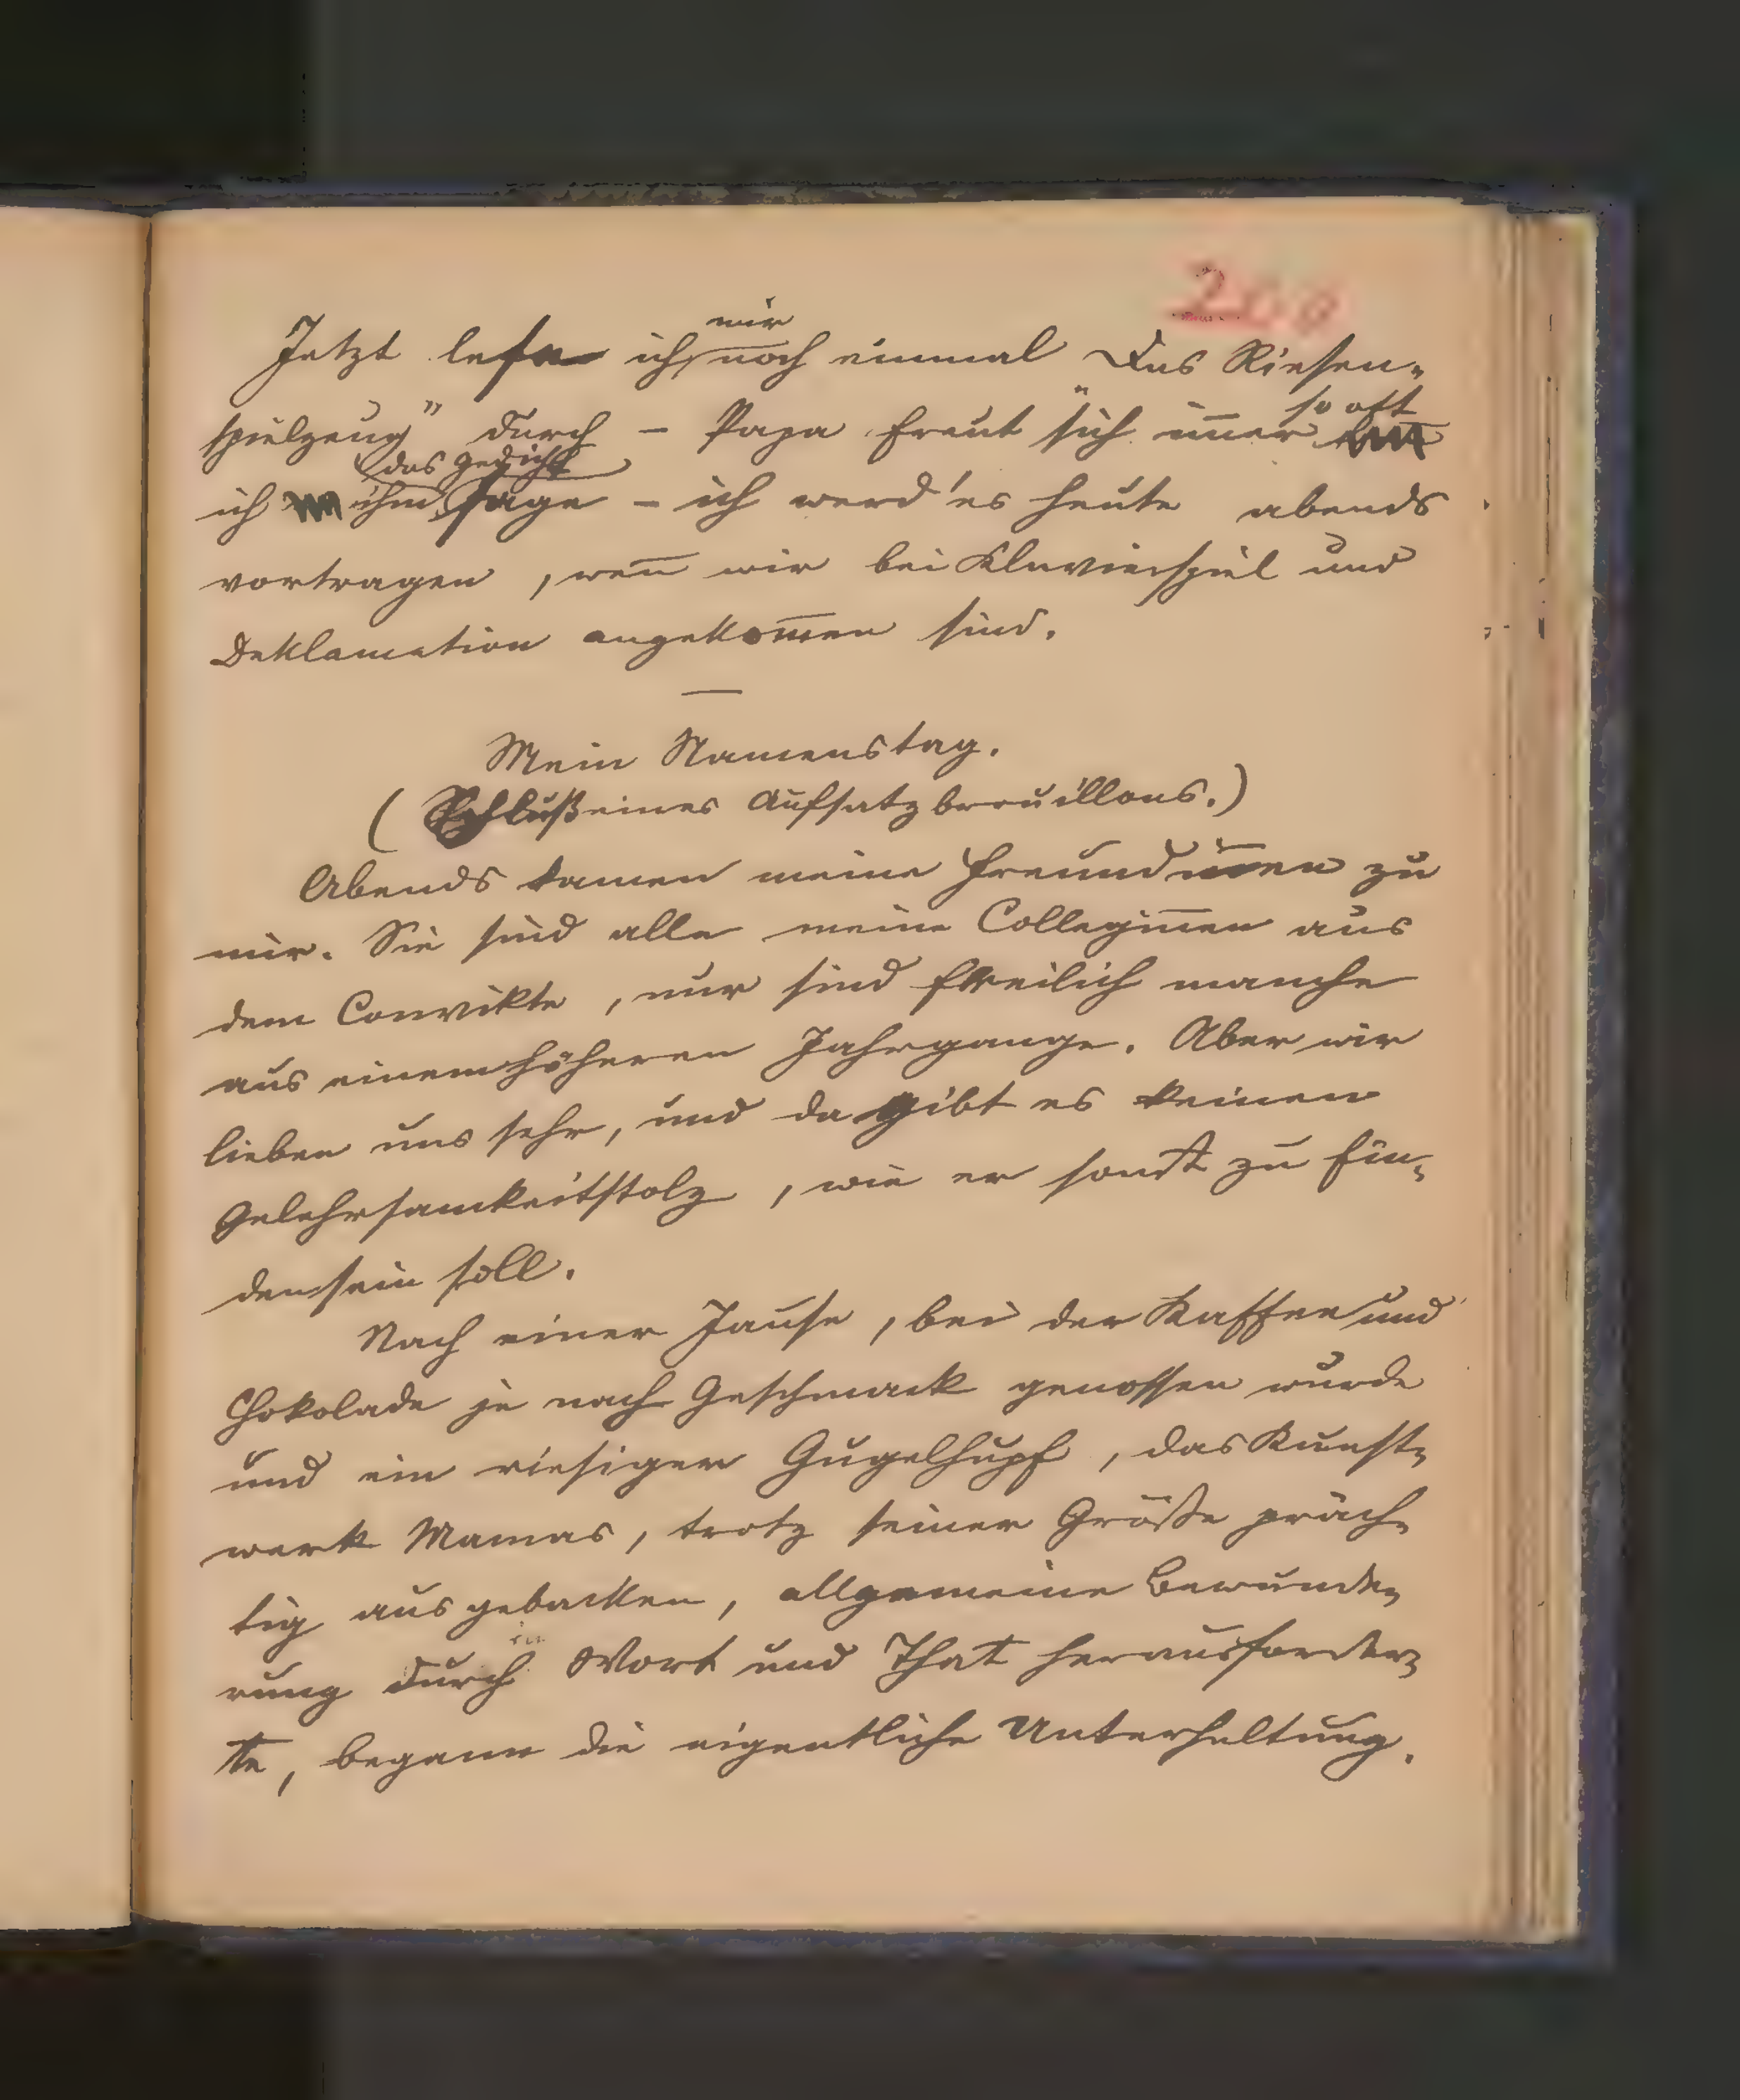 200
Jetzt lese ich mir noch einmal „Das Riesen-
spielzeug" durch – Papa freut sich im̅er so oft
ich ihm das Gedicht sage – ich werd' es heute abends
vortragen, wen̅ wir bei Klavierspiel und
Deklamation angekom̅en sind.
—
Mein Namenstag.
(Schluß eines Aufsatzbrouillons.)
Abends kamen meine Freundin̅en zu
mir. Sie sind alle meine Collegin̅en aus
dem Convikte, nur sind freilich manche
aus einem höheren Jahrgange. Aber wir
lieben uns sehr, und da gibt es keinen
Gelehrsamkeitstolz, wie er sonst zu fin-
den sein soll.
Nach einer Jause, bei der Kaffee und
Chokolade je nach Geschmack genossen wurde
und ein riesiger Gugelhupf, das Kunst-
werk Mamas, trotz seiner Größe präch-
tig ausgebacken, allgemeine Bewunde-
rung durch Wort und That herausforder-
te, begann die eigentliche Unterhaltung.